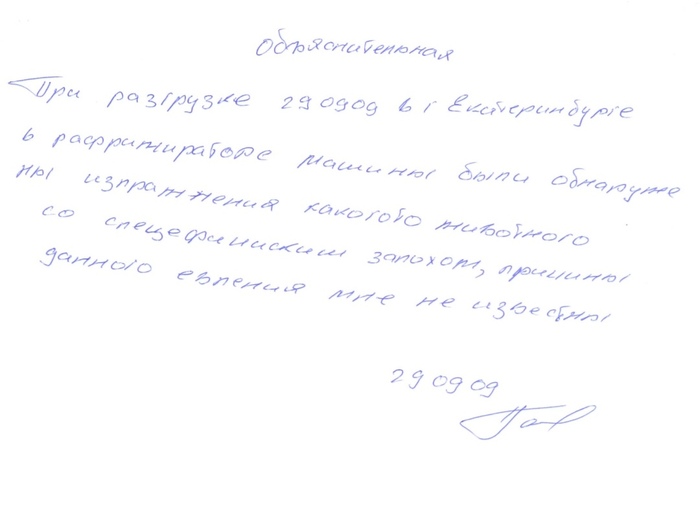 Объяснительная
При разгрузке 290909 в г Екатеринбурге
в рафрижираторе машины были обнаруже
ны изпражнения какогото животного
со спецефичиским запохом, причины
данного евления мне не известны
290909